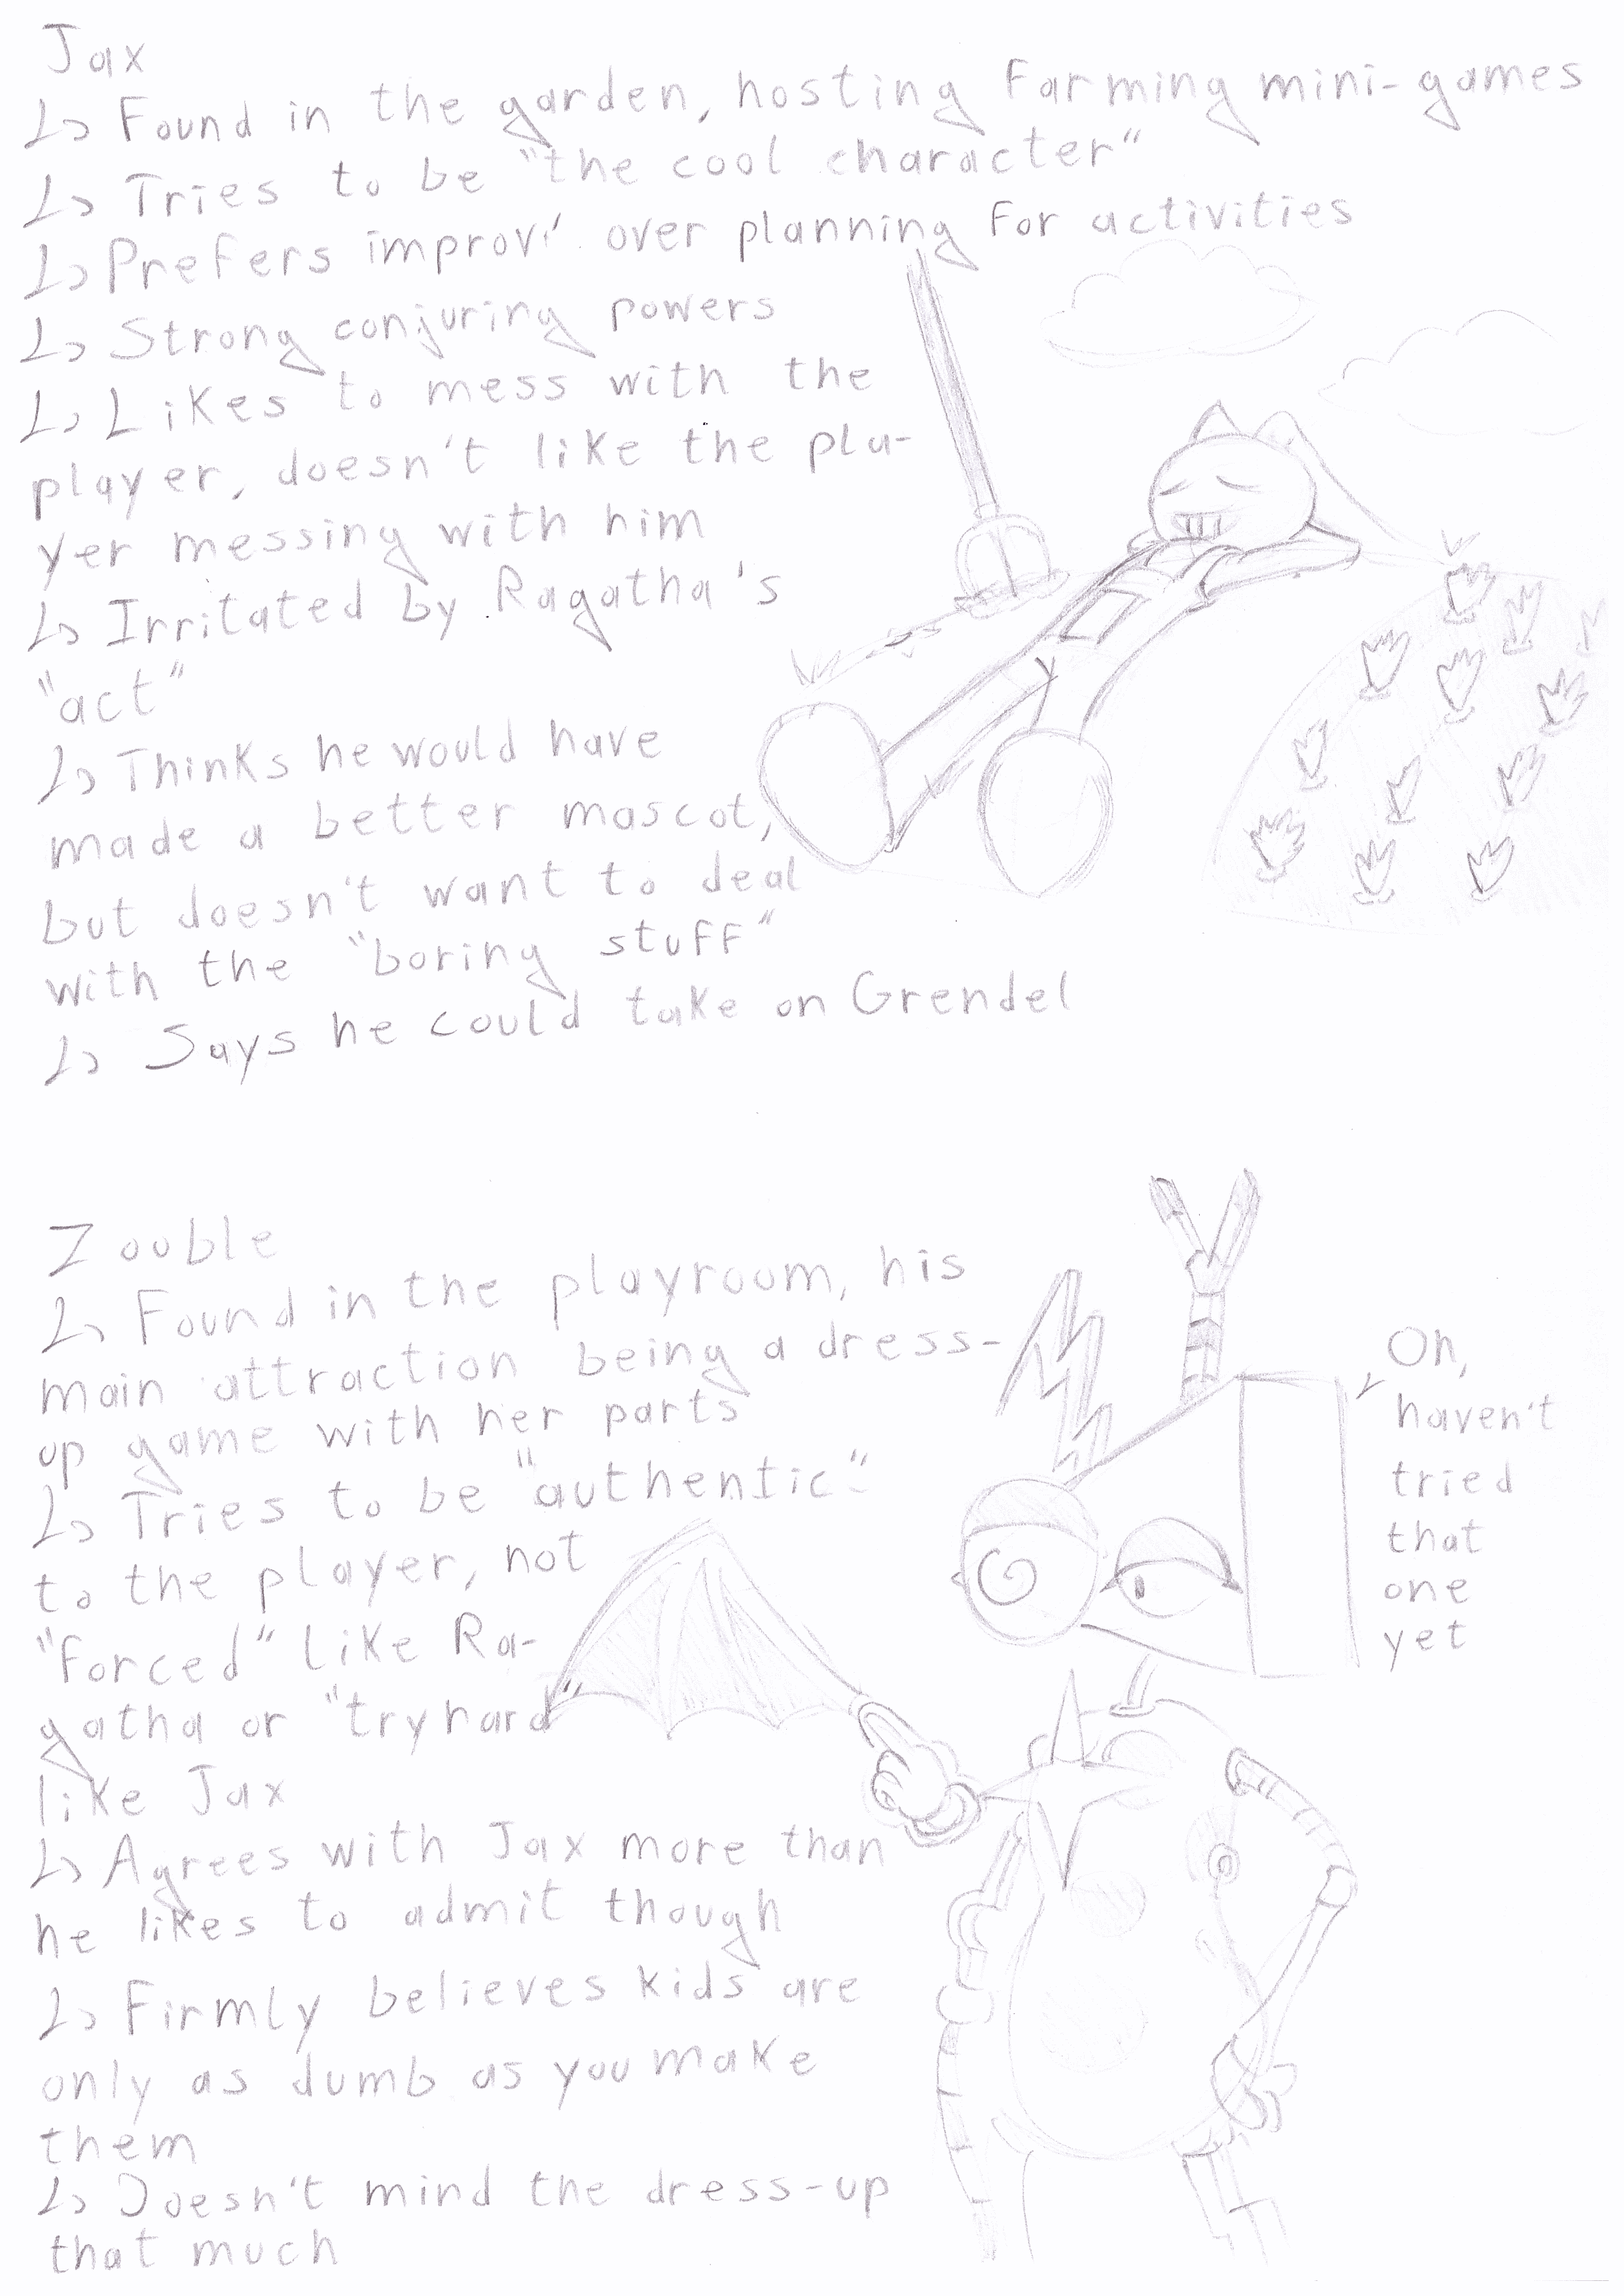 Jax
↳ Found in the garden, hosting farming mini-games
↳ Tries to be "the cool character"
↳ Prefers improv' over planning for activities
↳ Strong conjuring powers
↳ Likes to mess with the
player, doesn't like the pla-
yer messing with him
↳ Irritated by Ragatha's
"act"
↳ Thinks he would have
made a better mascot,
but doesn't want to deal
with the "boring stuff"
↳ Says he could take on Grendel
Zouble
↳ Found in the playroom, his
main attraction being a dress-
up game with her parts
↳ Tries to be "authentic"
to the player, not
"forced" like Ra-
gatha or "tryhard"
like Jax
↳ Agrees with Jax more than
he likes to admit though
↳ Firmly believes kids are
only as dumb as you make
them
↳ Doesn't mind the dress-up
that much
Oh,
haven't
tried
that
one
yet